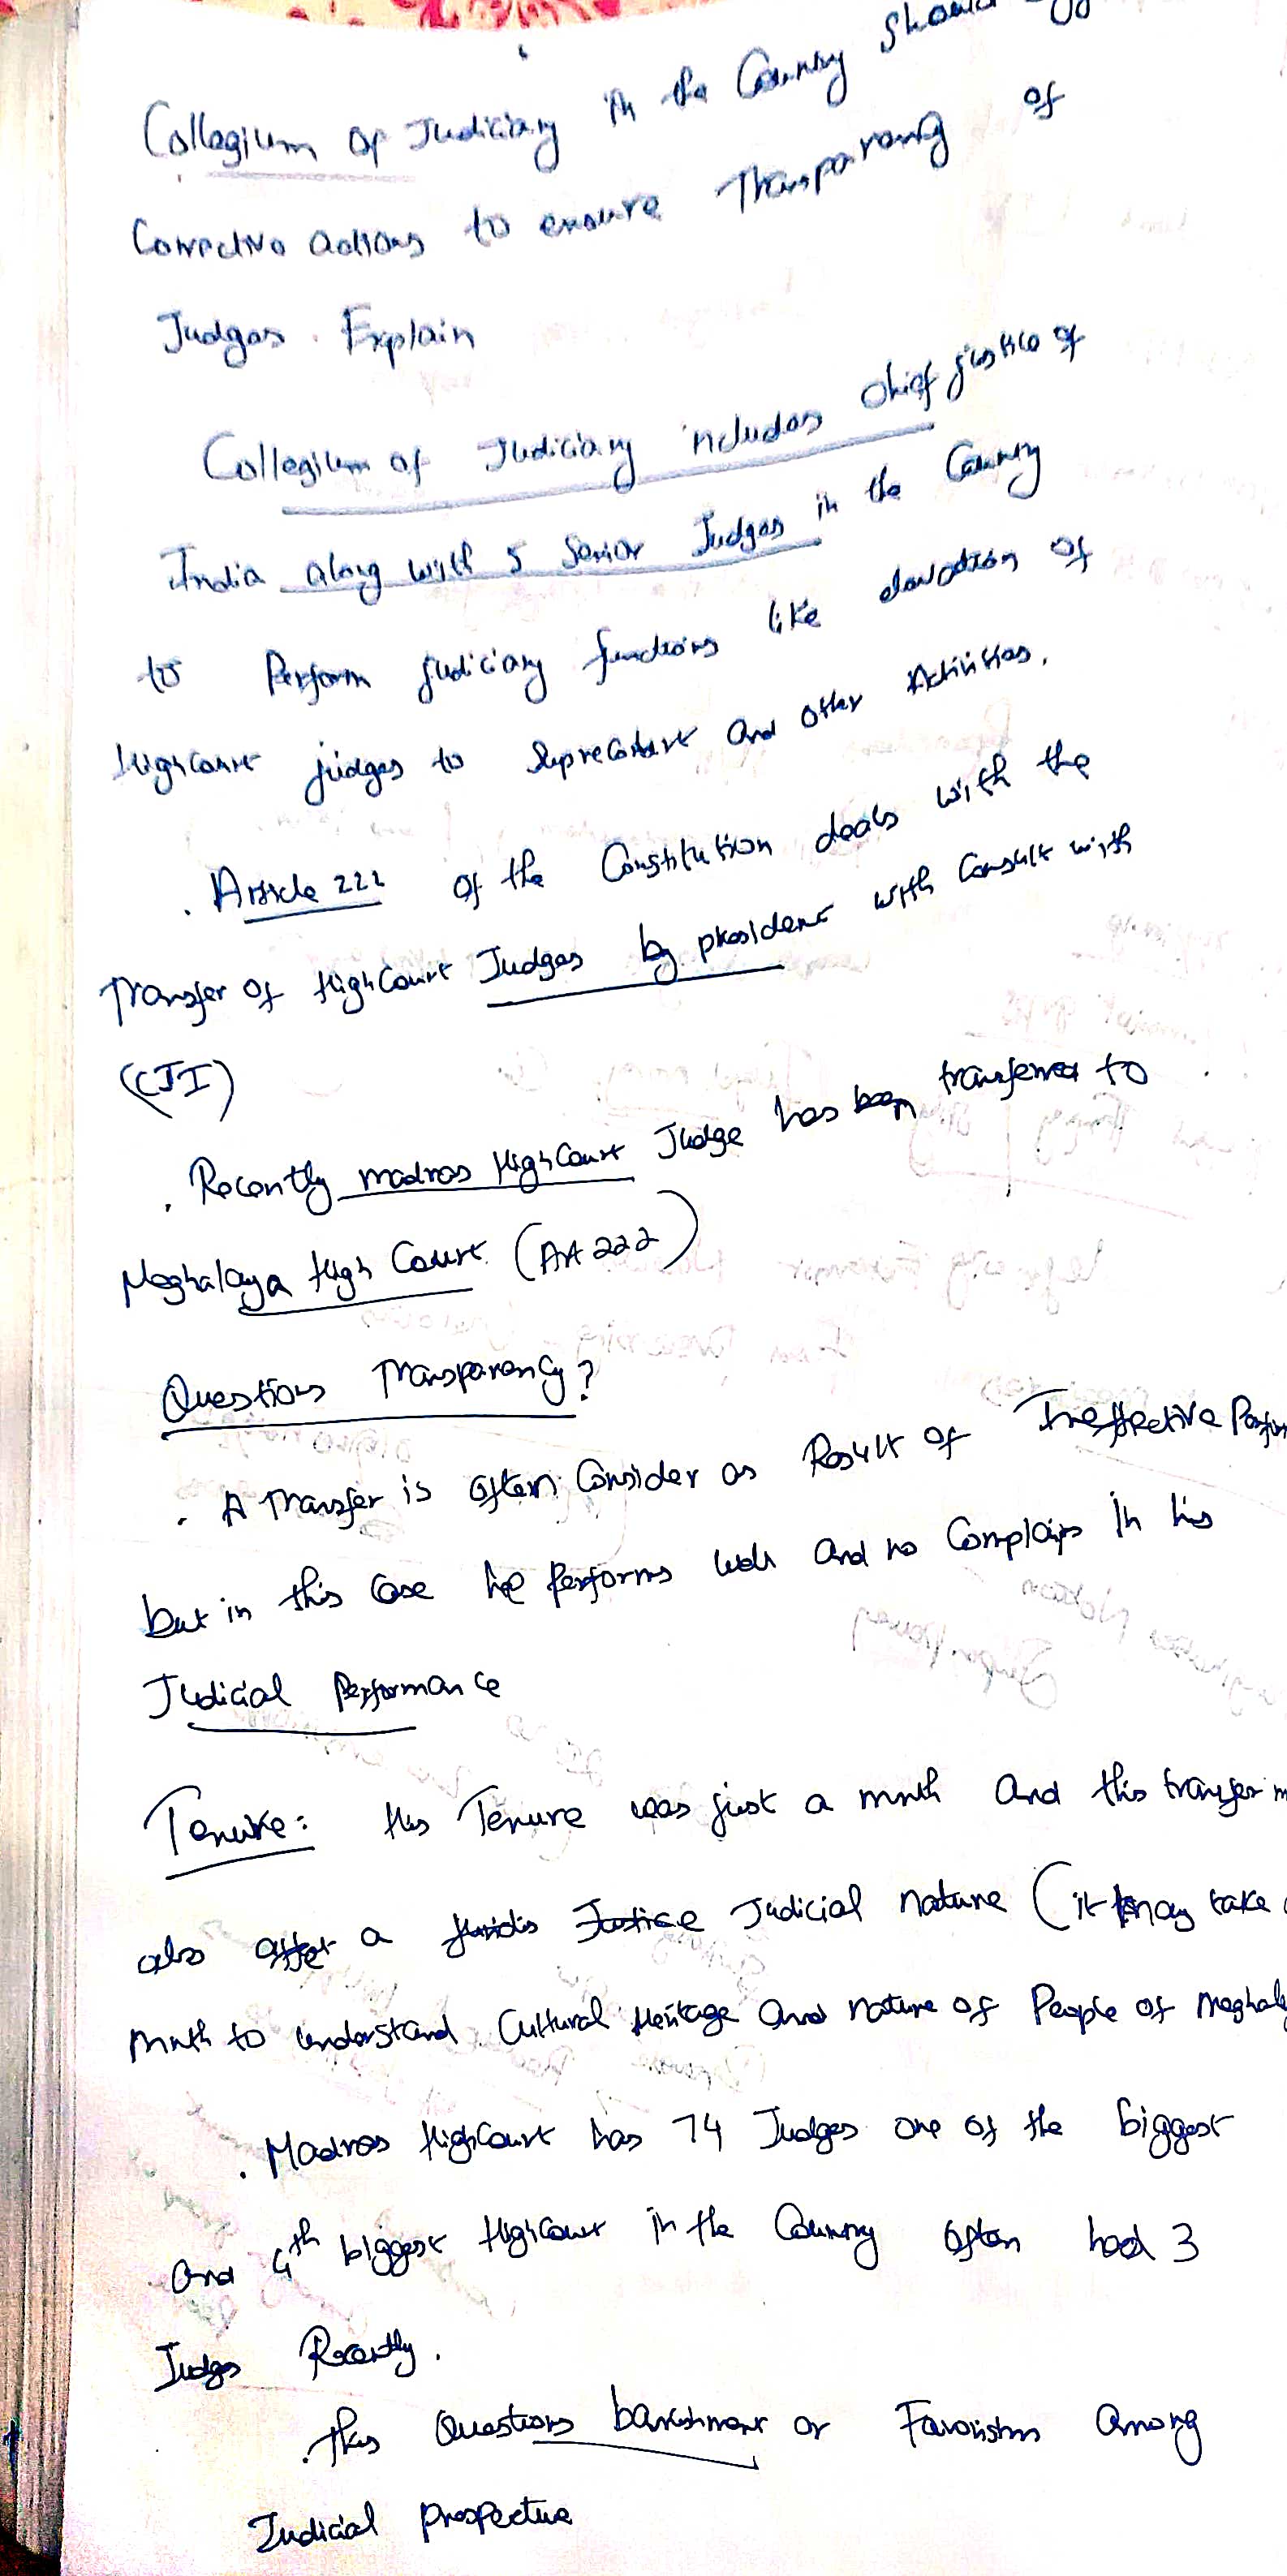 Collegium of Judiciary in the Country should
Corrective actions to ensure Transparency of
Judges. Explain
Collegium of Judiciary includes chief justice of
India along with 5 Senior Judges in the Country
to Perform judiciary functions like elevation of
High Court judges to Supreme Court and other Activities.
. Article 222 of the Constitution deals with the
Transfer of High Court Judges by president with Consult with
(CJI)
. Recently madras High Court Judge has been transferred to
Meghalaya High Court (Art 222)
Questions Transparency?
. A Transfer is often Consider as Result of Ineffective
but in this Case he Performs well and no Complaips in his
Judicial Performance
Tenure: His Tenure was just a mnth and this transfer
also affet a Judicial nature (it may take
mnth to understand Cultural Heritage and nature of People of Meghal
. Madras High Court has 74 Judges one of the biggest
and 4th biggest High Court in the Country often had 3
Judges Recently.
. This Questions banishment or Favouristm among
Judicial prospective